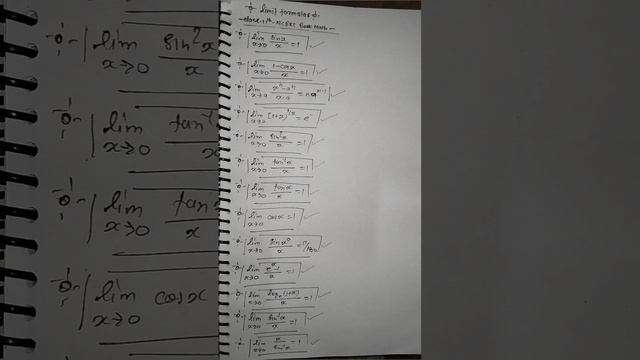 limit formulas
class-11th NCERT Book Math
lim x→0 sinx/x = 1
lim x→0 1-cosx/x = 1
lim x→a xⁿ-aⁿ/x-a = naⁿ⁻¹
lim x→0 [1+x]^1/x = e
lim x→0 sin²x/x = 1
lim x→0 tan⁻¹x/x = 1
lim x→0 tanx/x = 1
lim x→0 cosx = 1
lim x→0 sinx⁰/x = π/180
lim x→0 eˣ-1/x = 1
lim x→0 logₑ[1+x]/x = 1
lim x→0 sin⁻¹x/x = 1
lim x→0 x/sin⁻¹x = 1